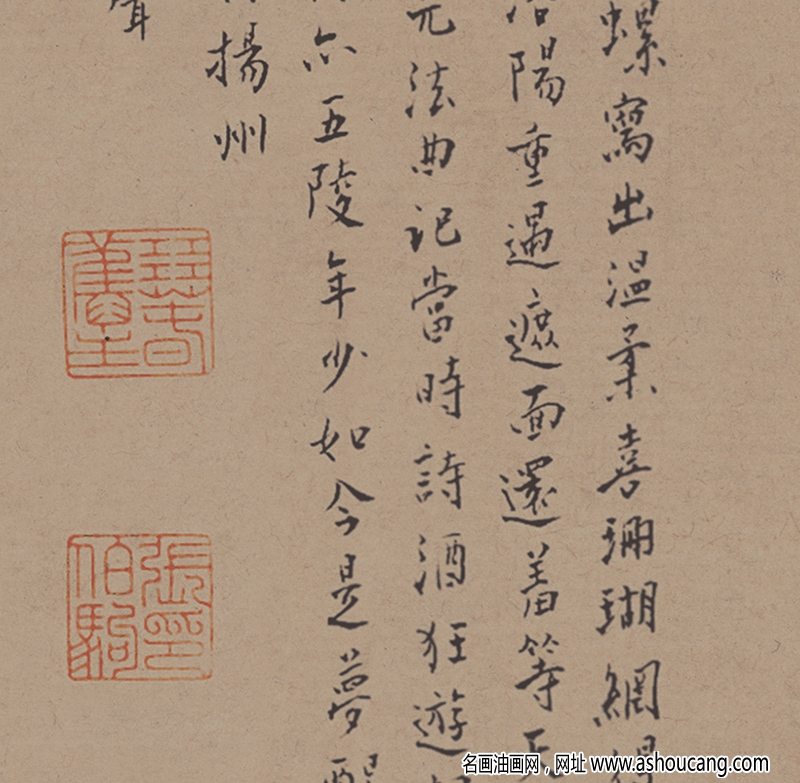 螺寫出温柔喜珊瑚網
陽重過遮面還羞等
元法曲記當時詩酒狂遊
亦五陵年少如今是夢醒
揚州
張印
伯駒
名画油画网，网址 www.ashoucang.com